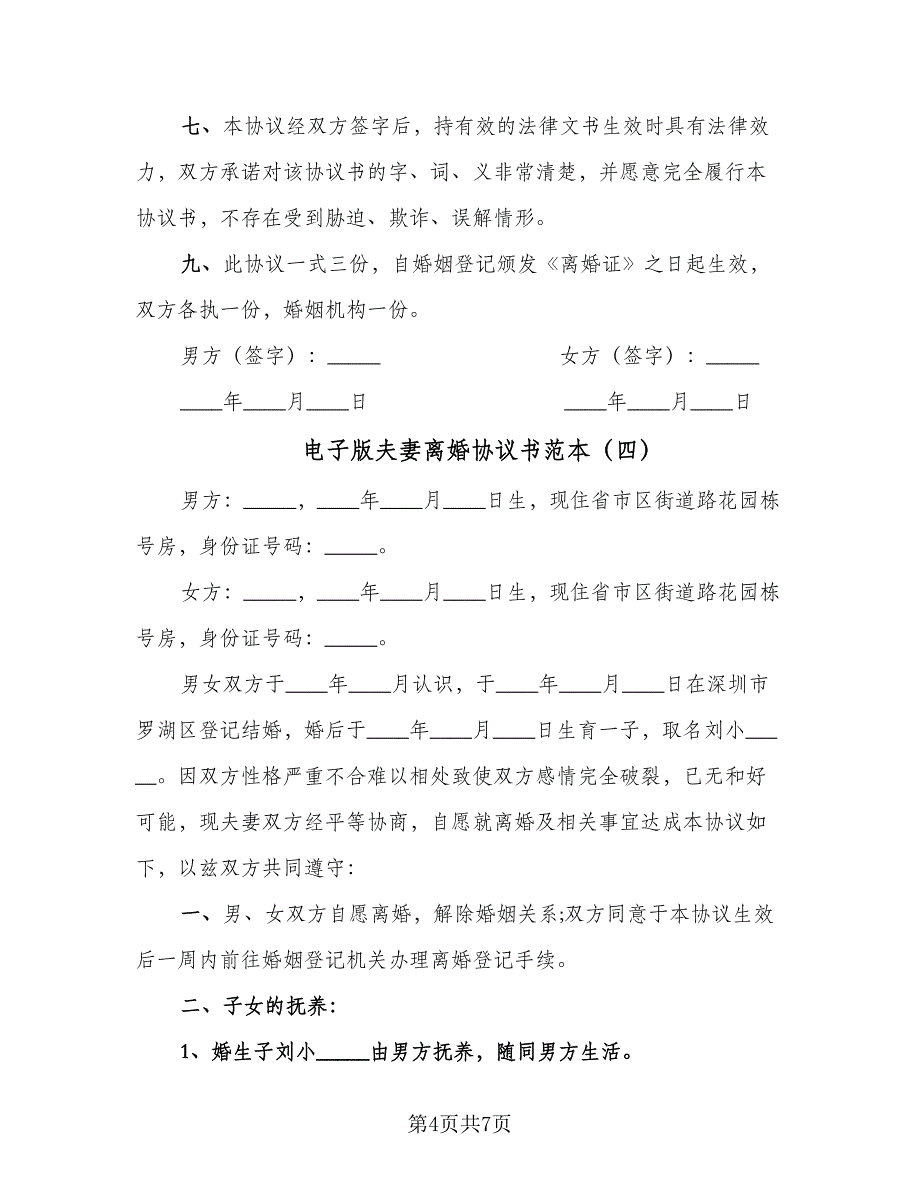 七、本协议经双方签字后，持有效的法律文书生效时具有法律效
力，双方承诺对该协议书的字、词、义非常清楚，并愿意完全履行本
协议书，不存在受到胁迫、欺诈、误解情形。
九、此协议一式三份，自婚姻登记颁发《离婚证》之日起生效，
双方各执一份，婚姻机构一份。
男方（签字）：_____ 女方（签字）：_____
____年____月____日 ____年____月____日
电子版夫妻离婚协议书范本（四）
男方：_____，____年____月____日生，现住省市区街道路花园栋
号房，身份证号码：_____。
女方：_____，____年____月____日生，现住省市区街道路花园栋
号房，身份证号码：_____。
男女双方于____年____月认识，于____年____月____日在深圳市
罗湖区登记结婚，婚后于____年____月____日生育一子，取名刘小___
__。因双方性格严重不合难以相处致使双方感情完全破裂，已无和好
可能，现夫妻双方经平等协商，自愿就离婚及相关事宜达成本协议如
下，以兹双方共同遵守：
一、男、女双方自愿离婚，解除婚姻关系;双方同意于本协议生效
后一周内前往婚姻登记机关办理离婚登记手续。
二、子女的抚养：
1、婚生子刘小_____由男方抚养，随同男方生活。
第4页共7页